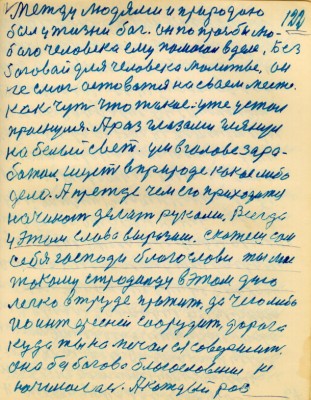 Между людями и природою 199
был у жизни бог. он по прозьби лю-
бого человека ему помогал в деле, Без
боговай для человека молитвы, он
не смог оставатя на своем месте.
Как чуть что такое. уже устал
проснулся. А раз глазами глянул
на белый свет. ум в голове зара-
ботал, ищет в природе какое либо
дело. А прежде чем его приходится
начинат делат руками, Всегда
у этом слова вырозим. скажеш сам
себя господи благослови ты мне
такому страдальцу в этом дню
легко в труде прожит, да чего либо
по интересней соорудит, дорога
куда ты на начал ся совершит.
она без богова благословения не
начиналася. А каждый раз